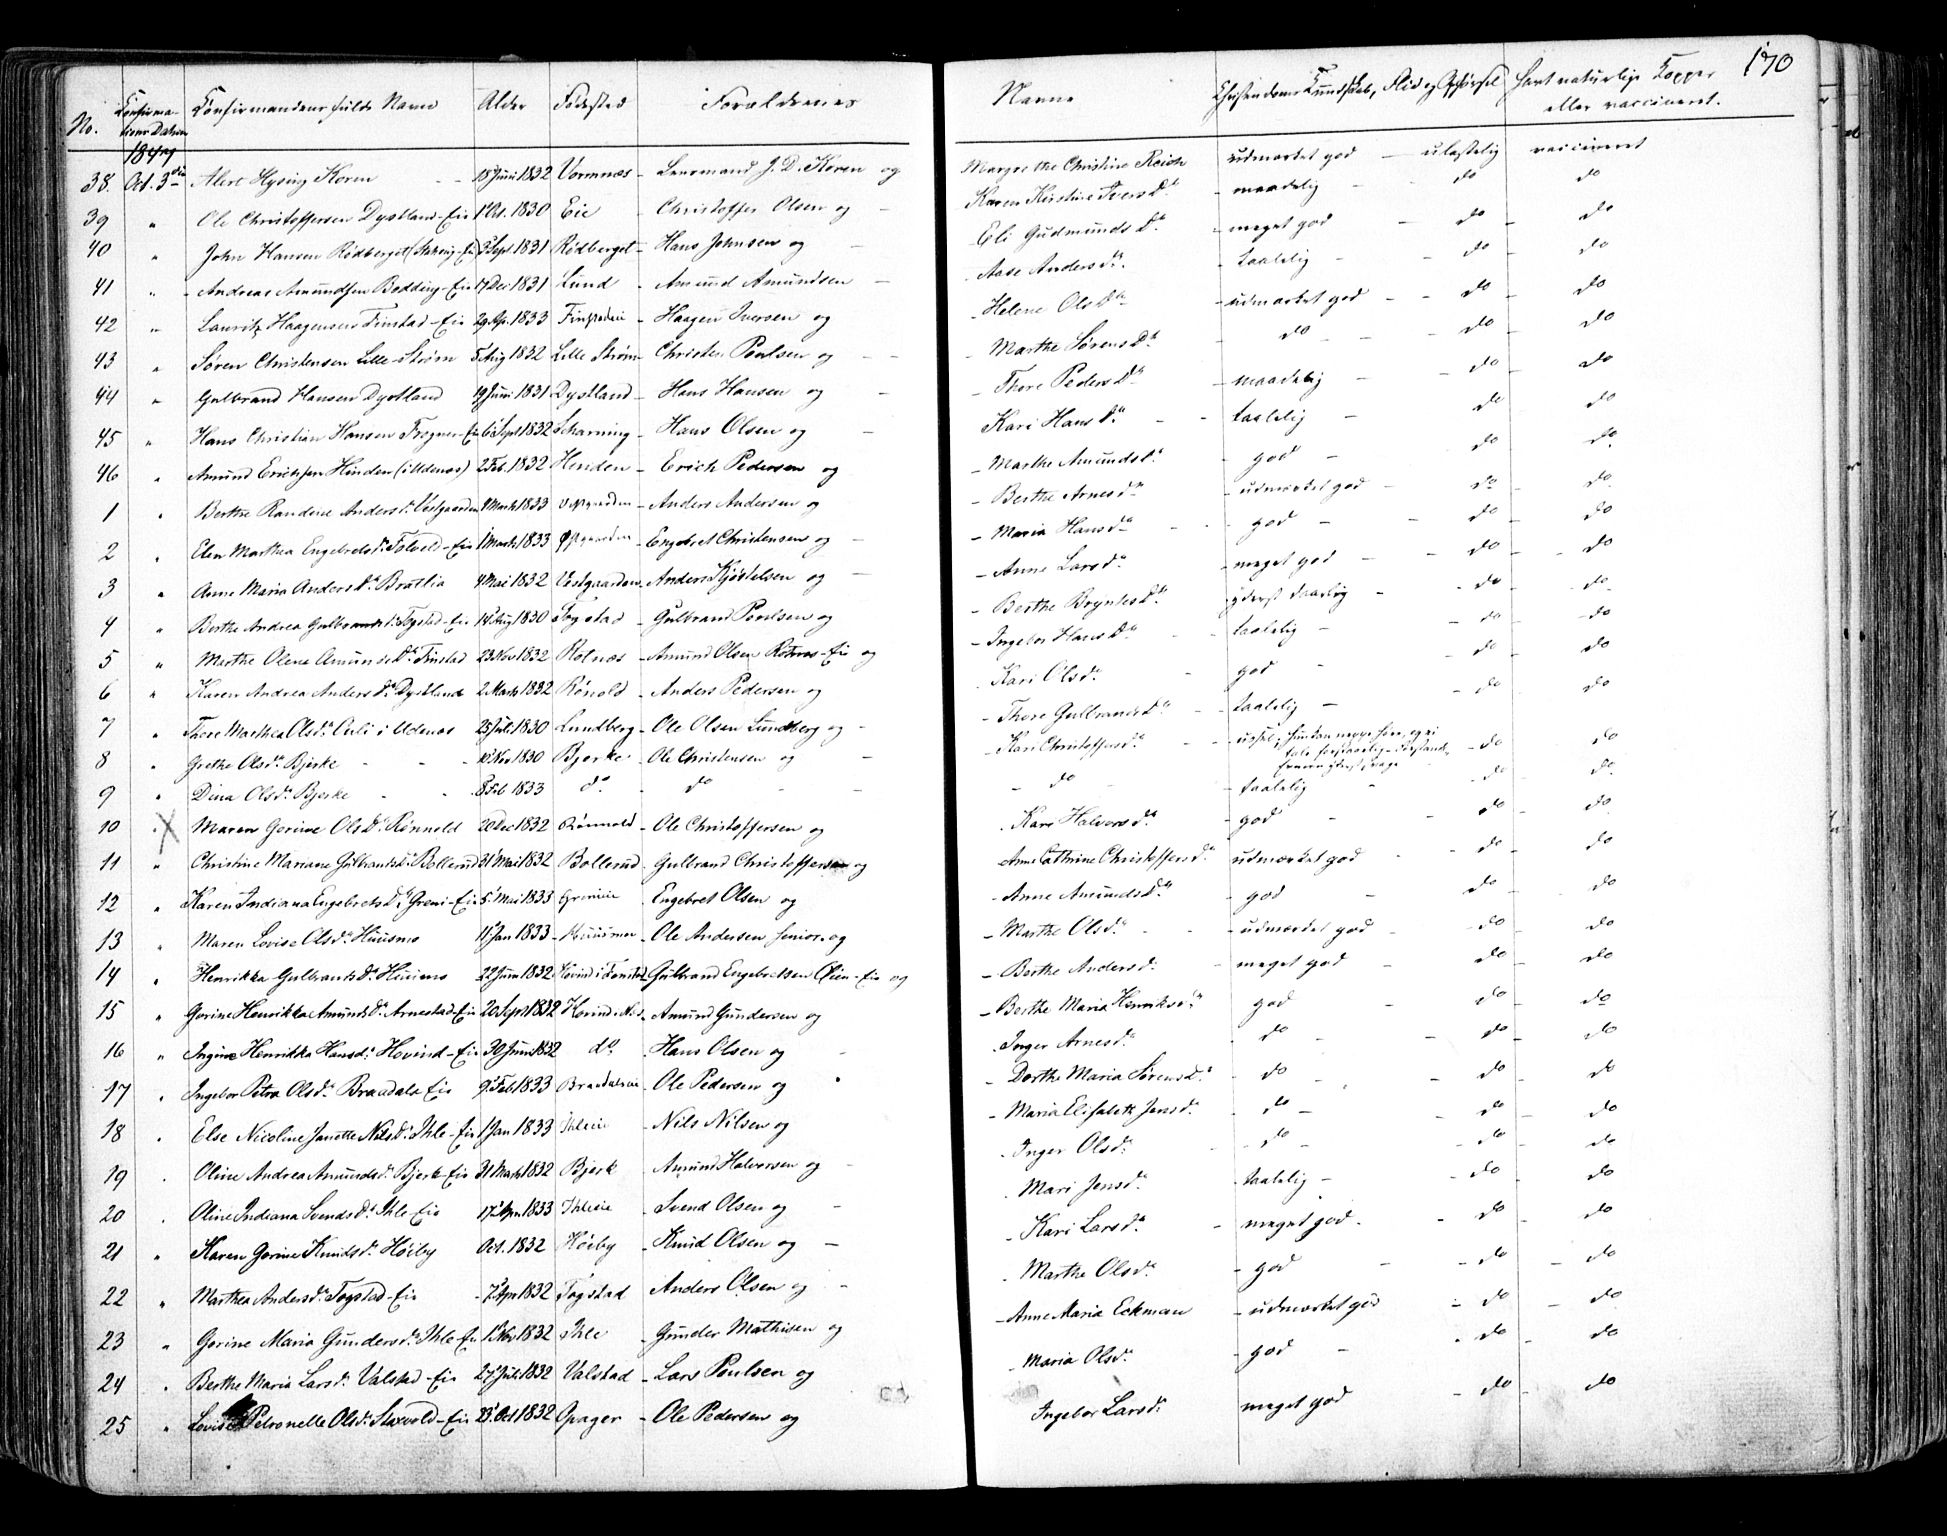 170
No. Confirmations Datum Confirmandens fulde Navn Alder Fødested Forældrenes Navne Christendoms Kundskab, Flid og Opførsel Havt naturlige Kopper eller vaccineret.
1847
38. Oct. 3die Alert Hysing Koren 15 Juni 1832 Vormnæs - Lensmand J. D. Koren og Margrethe Christine Reich udmærket god - ulastelig vaccineret
39 " Ole Christoffersen Dystland-Eie 1 Oct. 1830 Eie - Christoffer Olsen og - Karen Kirstine Iversd. - maadelig - do do
40 " John Hansen Rødberget 3 Sept 1831 Rødberget - Hans Johnsen og - Eli Gudmundsd. - meget god - do - do
41 " Andreas Amundsen Bødding-Eie 17 Dec 1831 Lund - Amund Amundsen - Aase Andersd. - taalelig - do - do
42 " Lauritz Haagensen Finstad-Eie 29 Ap. 1833 Finstadeie - Haagen Iversen og - Helene Olsd. - udmærket god - do - do
43 " Søren Christensen Lille-Strøm 5 Aug 1832 Lille Strøm - Christen Poulsen og - Marthe Sørensd. - do - do - do
44 " Gulbrand Hansen Dystland 19 Juni 1831 Dystland - Hans Hansen og - Thore Pedersd. - maadelig - do - do
45 " Hans Christian Hansen Frogner-Eie 6 Sept 1832 Scharning - Hans Olsen og - Kari Hansd. - taalelig - do do
46 " Amund Erichsen Henden (i Udenes) 2 Feb. 1832 Henden - Erich Pedersen og - Marthe Amundsd. - god - do do
1 " Berthe Randine Andersd. Vestgaarden 9 Marts 1833 Vestgaarden - Anders Andersen og - Berthe Arnesd. - udmærket god - do - do
2 " Elen Marthea Engebretsd. -Eie 1 Marts 1833 Østgaarden - Engebret Christensen og - Maria Hansd. - god - do - do
3 " Anne Maria Andersd. Bratlia 4 Mai 1832 Vestgaarden - Anders Kjøstelsen og - Anne Larsd. - meget god - do - do
4 " Berthe Andrea Gulbrandsd. Fogstad-Eie 14 Aug 1830 Fogstad - Gulbrand Poulsen og - Berthe Bryntesd. - yderst daarlig - do - do
5 " Marthe Olena Amundsd. Finstad 23 Nov 1832 Rotnæs - Amund Olsen Rotnes-Eie og - Ingebor Hansd. - taalelig - do - do
6 " Karen Andrea Andersd. Dystland 2 Marts 1832 Rønold - Anders Pedersen og Kari Olsd. god - do - do
7 " Thore Marthea Olsd. i Udenæs 25 Juli 1830 Lundberg - Ole Olsen Lundberg og - Thore Gulbrandsd. - taalelig - - do do
8 " Grethe Olsd. Bjerke - - Nov 1830 Bjerke - Ole Christensen og - Kari Christoffersd. - ussel; hun kan neppe høre, og ei tale forstaaelig - Forstanden yderst svag - do - do
9 " Dina Olsd. Bjerke - - 8 Feb 1833 do - do - - do - taalelig - do do
10 " X Maren Gorine Olsd. Rønnold 20 Dec 1832 Rønnold - Ole Christoffersen og Kari Halvorsd. - god - do - do
11 " Christine Mariane Gulbrandsd. Bollerud 31 Mai 1832 Bollerud - Gulbrand Christoffersen og Anne Cathrine Christoffersd. udmærket god - do - do
12 " Karen Indiana Engebretsd. Greni-Eie 5 Mai 1833 Grenieie - Engebret Olsen og - Anne Amundsd. - god - do - do
13 " Maren Lovise Olsd. Huusmo 11 Jan 1833 - Huusmoe - Ole Andersen senior og - Marthe Olsd. - udmærket god - do - do
14 " Henrikka Gulbrandsd. Huusmo 22 Juni 1832 Hovind i - Gulbrand Engebretsen -Eie og - Berthe Andersd. - meget god - do - do
15 " Gorine Henrikka Amundsd. Arnestad-Eie 20 Sept 1832 Hovind - Amund Gundersen og - Berthe Maria Henriksd. god - do - do
16 " Ingine Henrikka Hansd. Hovind-Eie 30 Juni 1832 do - Hans Olsen og - Inger Arnesd. - do - do - do
17 " Ingebor Petra Olsd. Braadals Eie 9 Feb 1833 Braadalseie - Ole Pedersen og - Dorthe Maria Sørensd. - do - do - do
18 " Else Nicoline Janette Nilsd. Ihle-Eie 1 Jan 1833 Ihleeie - Nils Nilsen og - Maria Elisabeth Jensd. - do - do - do
19 " Oline Andrea Amundsd. Bjerk-Eie 31 Marts 1832 Bjerk - Amund Halvorsen og - Inger Olsd. - do - do - do
20 " Oline Indiana Svendsd. Ihle-Eie 17 Apr 1833 Ihleeie - Svend Olsen og - Mari Jensd. - taalelig - do - do
21 " Karen Gorine Knudsd. Høiby Oct. 1832 Høiby - Knud Olsen og - Kari Larsd. - meget god - do - do
22 " Marthea Andersd. Fogstad-Eie - 7 Apr 1832 Fogstad - Anders Olsen og - Marthe Olsd. - god - do - do
23 " Gorine Maria Gundersd. Ihle-Eie 1 Nov 1832 Ihle - Gunder Mathisen og - Anne Maria Eckman - udmærket god - do - do
24 " Berthe Maria Larsd. Valstad-Eie 27 Juli 1832 Valstad - Lars Poulsen og - Maria Olsd. - god - do - do
25 " Lovise Petronelle Olsd. -Eie 23 Oct 1832 Opager - Ole Pedersen og Ingebor Larsd. meget god - do - do